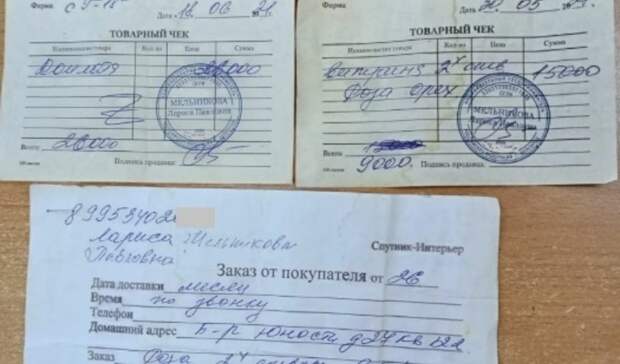 Фирма
Дата 18.06 21.
ТОВАРНЫЙ ЧЕК
Наименование товара Кол-во Цена Сумма
28000
МЕЛЬНИКОВА
Лариса Павловна
Всего 28000 Подпись продавца
Фирма
Дата 05
ТОВАРНЫЙ ЧЕК
Наименование товара Кол-во Цена Сумма
Витрина 2х ств 15000
Роза орех
МЕЛЬНИКОВА
Всего 15000
9000. Подпись продавца
89953402
Лариса Мельникова
Павловна
Спутник-Интерьер
Заказ от покупателя от 26
Дата доставки месяц
Время по звонку
Телефон
Домашний адрес б-р Юности д27 кв
Заказ Роза 2х